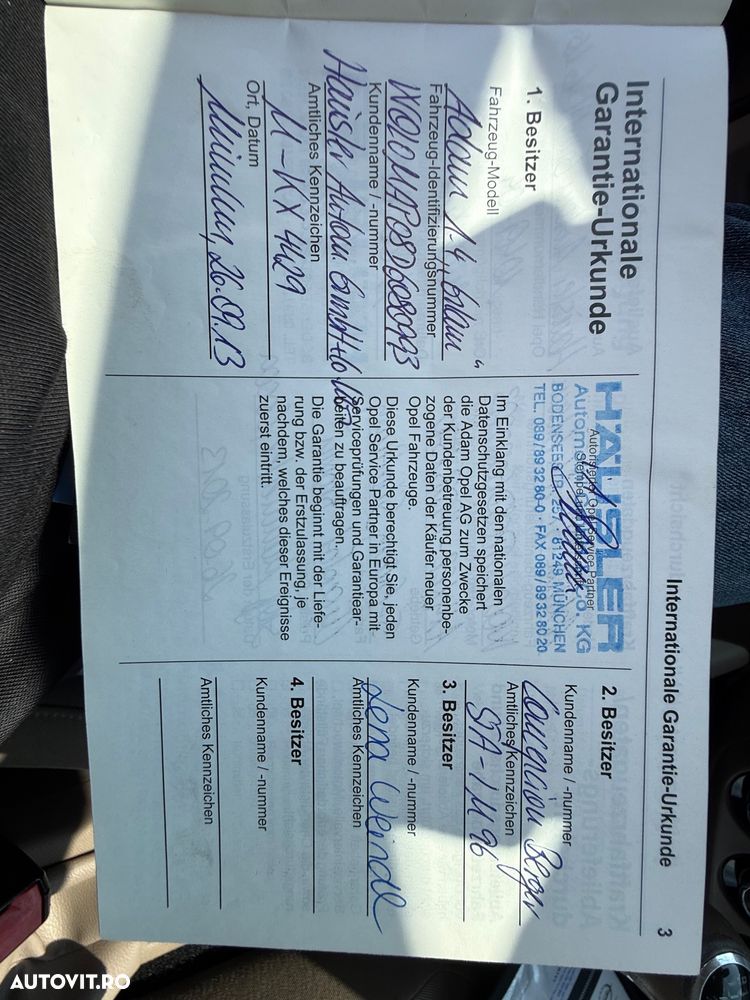 Internationale Garantie-Urkunde 3
Internationale
Garantie-Urkunde
1. Besitzer
Fahrzeug-Modell
Adam 1.4
Fahrzeug-Identifizierungsnummer
Kundenname / -nummer
Häusler Autom. GmbH
Amtliches Kennzeichen
M-KX 4429
Ort, Datum
München, 26.09.13
HÄUSLER
Automobil
Co. KG
Autorisierter Opel Service Partner
BODENSEESTR.
81249 MÜNCHEN
TEL. 089/89 32 80-0 · FAX 089/89 32 80 20
Im Einklang mit den nationalen
Datenschutzgesetzen speichert
die Adam Opel AG zum Zwecke
der Kundenbetreuung personenbe-
zogene Daten der Käufer neuer
Opel Fahrzeuge.
Diese Urkunde berechtigt Sie, jeden
Opel Service Partner in Europa mit
Serviceprüfungen und Garantiear-
beiten zu beauftragen.
Die Garantie beginnt mit der Liefe-
rung bzw. der Erstzulassung, je
nachdem, welches dieser Ereignisse
zuerst eintritt.
2. Besitzer
Kundenname / -nummer
Berger
Amtliches Kennzeichen
STA-
3. Besitzer
Kundenname / -nummer
Lena Weindl
Amtliches Kennzeichen
4. Besitzer
Kundenname / -nummer
Amtliches Kennzeichen
AUTOVIT.RO